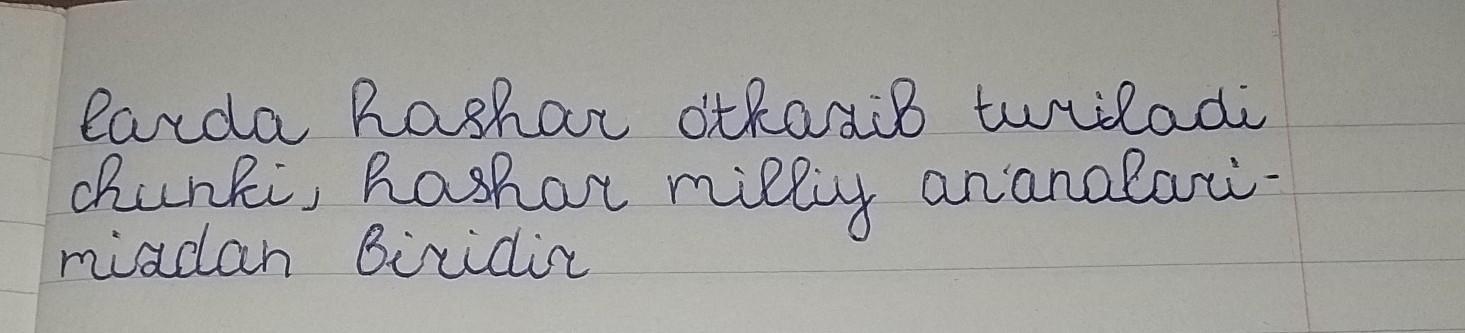 larda hashar o'tkazib turiladi
chunki, hashar milliy an'analari-
mizdan biridir